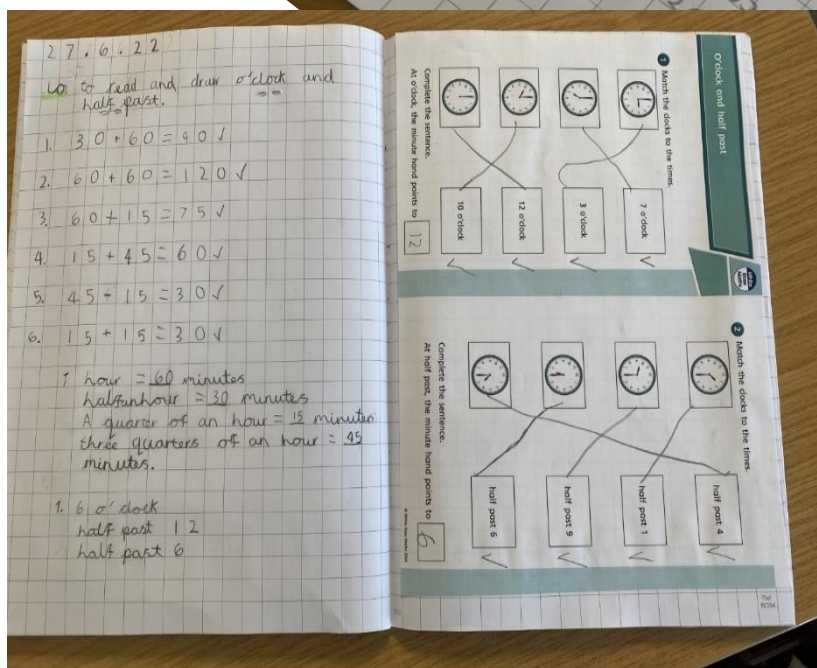 27.6.22
LO: to read and draw o'clock and
half past.
1. 30+60=90✓
2. 60+60=120✓
3. 60+15=75✓
4. 15+45=60✓
5. 45-15=30✓
6. 15+15=30✓
1 hour = 60 minutes
halfanhour = 30 minutes
A quarter of an hour = 15 minutes
three quarters of an hour = 45
minutes.
1. 6 o'clock
half past 12
half past 6
O'clock and half past
1 Match the clocks to the times.
7 o'clock
3 o'clock
12 o'clock
10 o'clock
Complete the sentence.
At o'clock, the minute hand points to 12
2 Match the clocks to the times.
half past 4
half past 1
half past 9
half past 6
Complete the sentence.
At half past, the minute hand points to 6